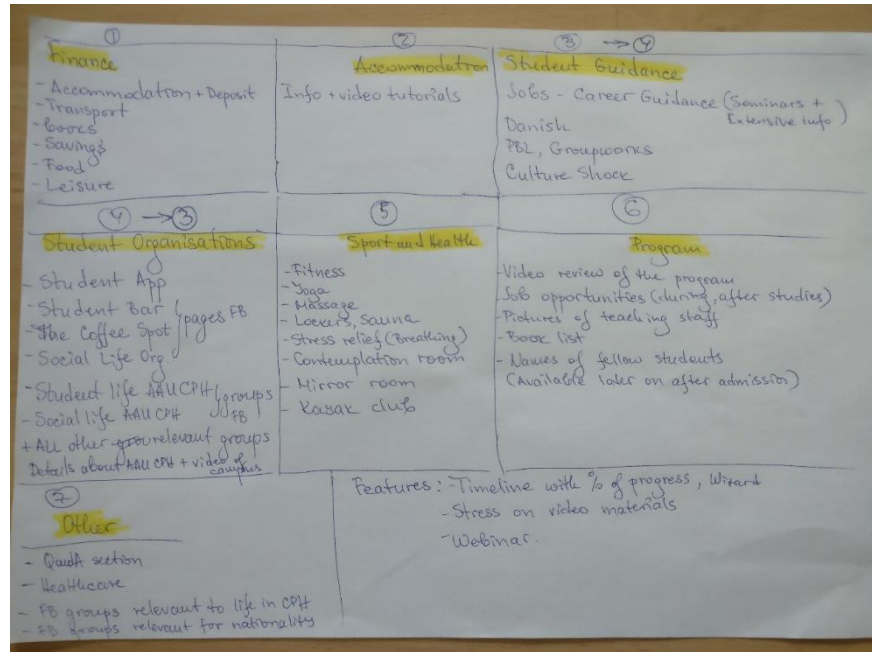 ①
Finance
- Accommodation + Deposit
- Transport
- books
- Savings
- Food
- Leisure
②
Accommodation
Info + video tutorials
③ → ④
Student Guidance
Jobs - Career Guidance (Seminars +
Extensive info)
Danish
PBL, Groupworks
Culture Shock
④ → ③
Student Organisations
- Student App
- Student Bar
- The Coffee Spot
- Social Life Org
pages FB
- Student life AAU CPH
- Social life AAU CPH
groups
FB
+ All other relevant groups
Details about AAU CPH + video of
campus
⑤
Sport and Health
- Fitness
- Yoga
- Massage
- Lockers, Sauna
- Stress relief (Breathing)
- Contemplation room
- Mirror room
- Kayak club
⑥
Program
- Video review of the program
Job opportunities (during, after studies)
- Pictures of teaching staff
- Book list
- Names of fellow students
(Available later on after admission)
⑦
Other
- QandA section
- Healthcare
- FB groups relevant to life in CPH
- FB groups relevant for nationality
Features: - Timeline with % of progress, Wizard
- Stress on video materials
- Webinar.